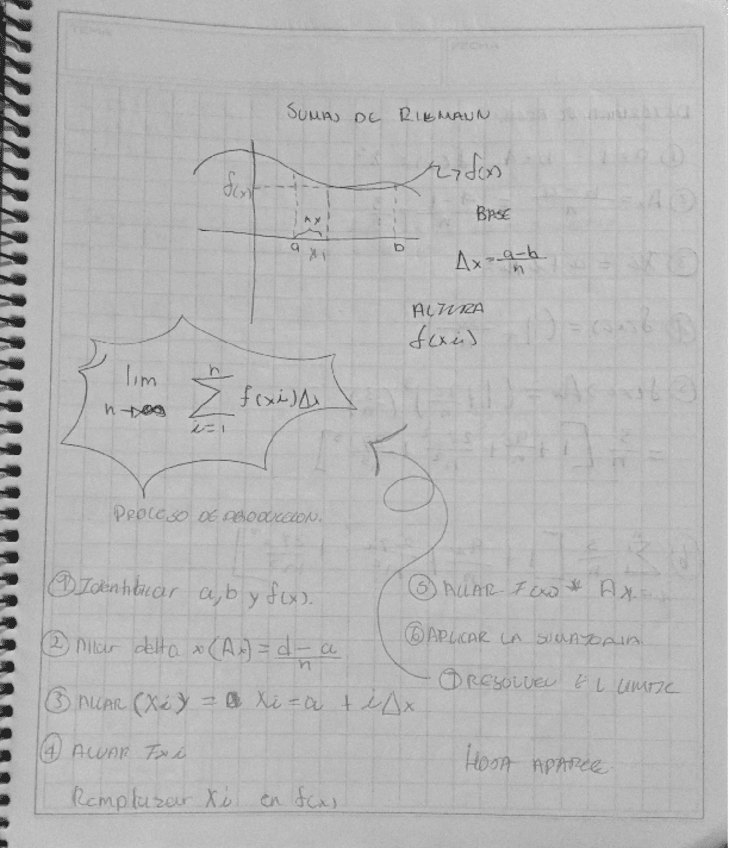 TEMA
FECHA
SUMAS DE RIEMAUN
f(x)
f(x)
BASE
Δx
a xi b
Δx = a-b / n
ALTURA
f(xi)
lim n→∞ Σ i=1 n f(xi)Δx
PROCESO DE PRODUCCION.
① Identificar a, b y f(x).
② Allar delta x (Δx) = d-a / n
③ ALLAR (Xi) = Xi = a + iΔx
④ ALLAR Fxi
Remplazar Xi en f(x)
⑤ ALLAR F(xi) * Δx.
⑥ APLICAR LA SUMATORIA
⑦ RESOLVER EL LIMITE
HOJA APARTE